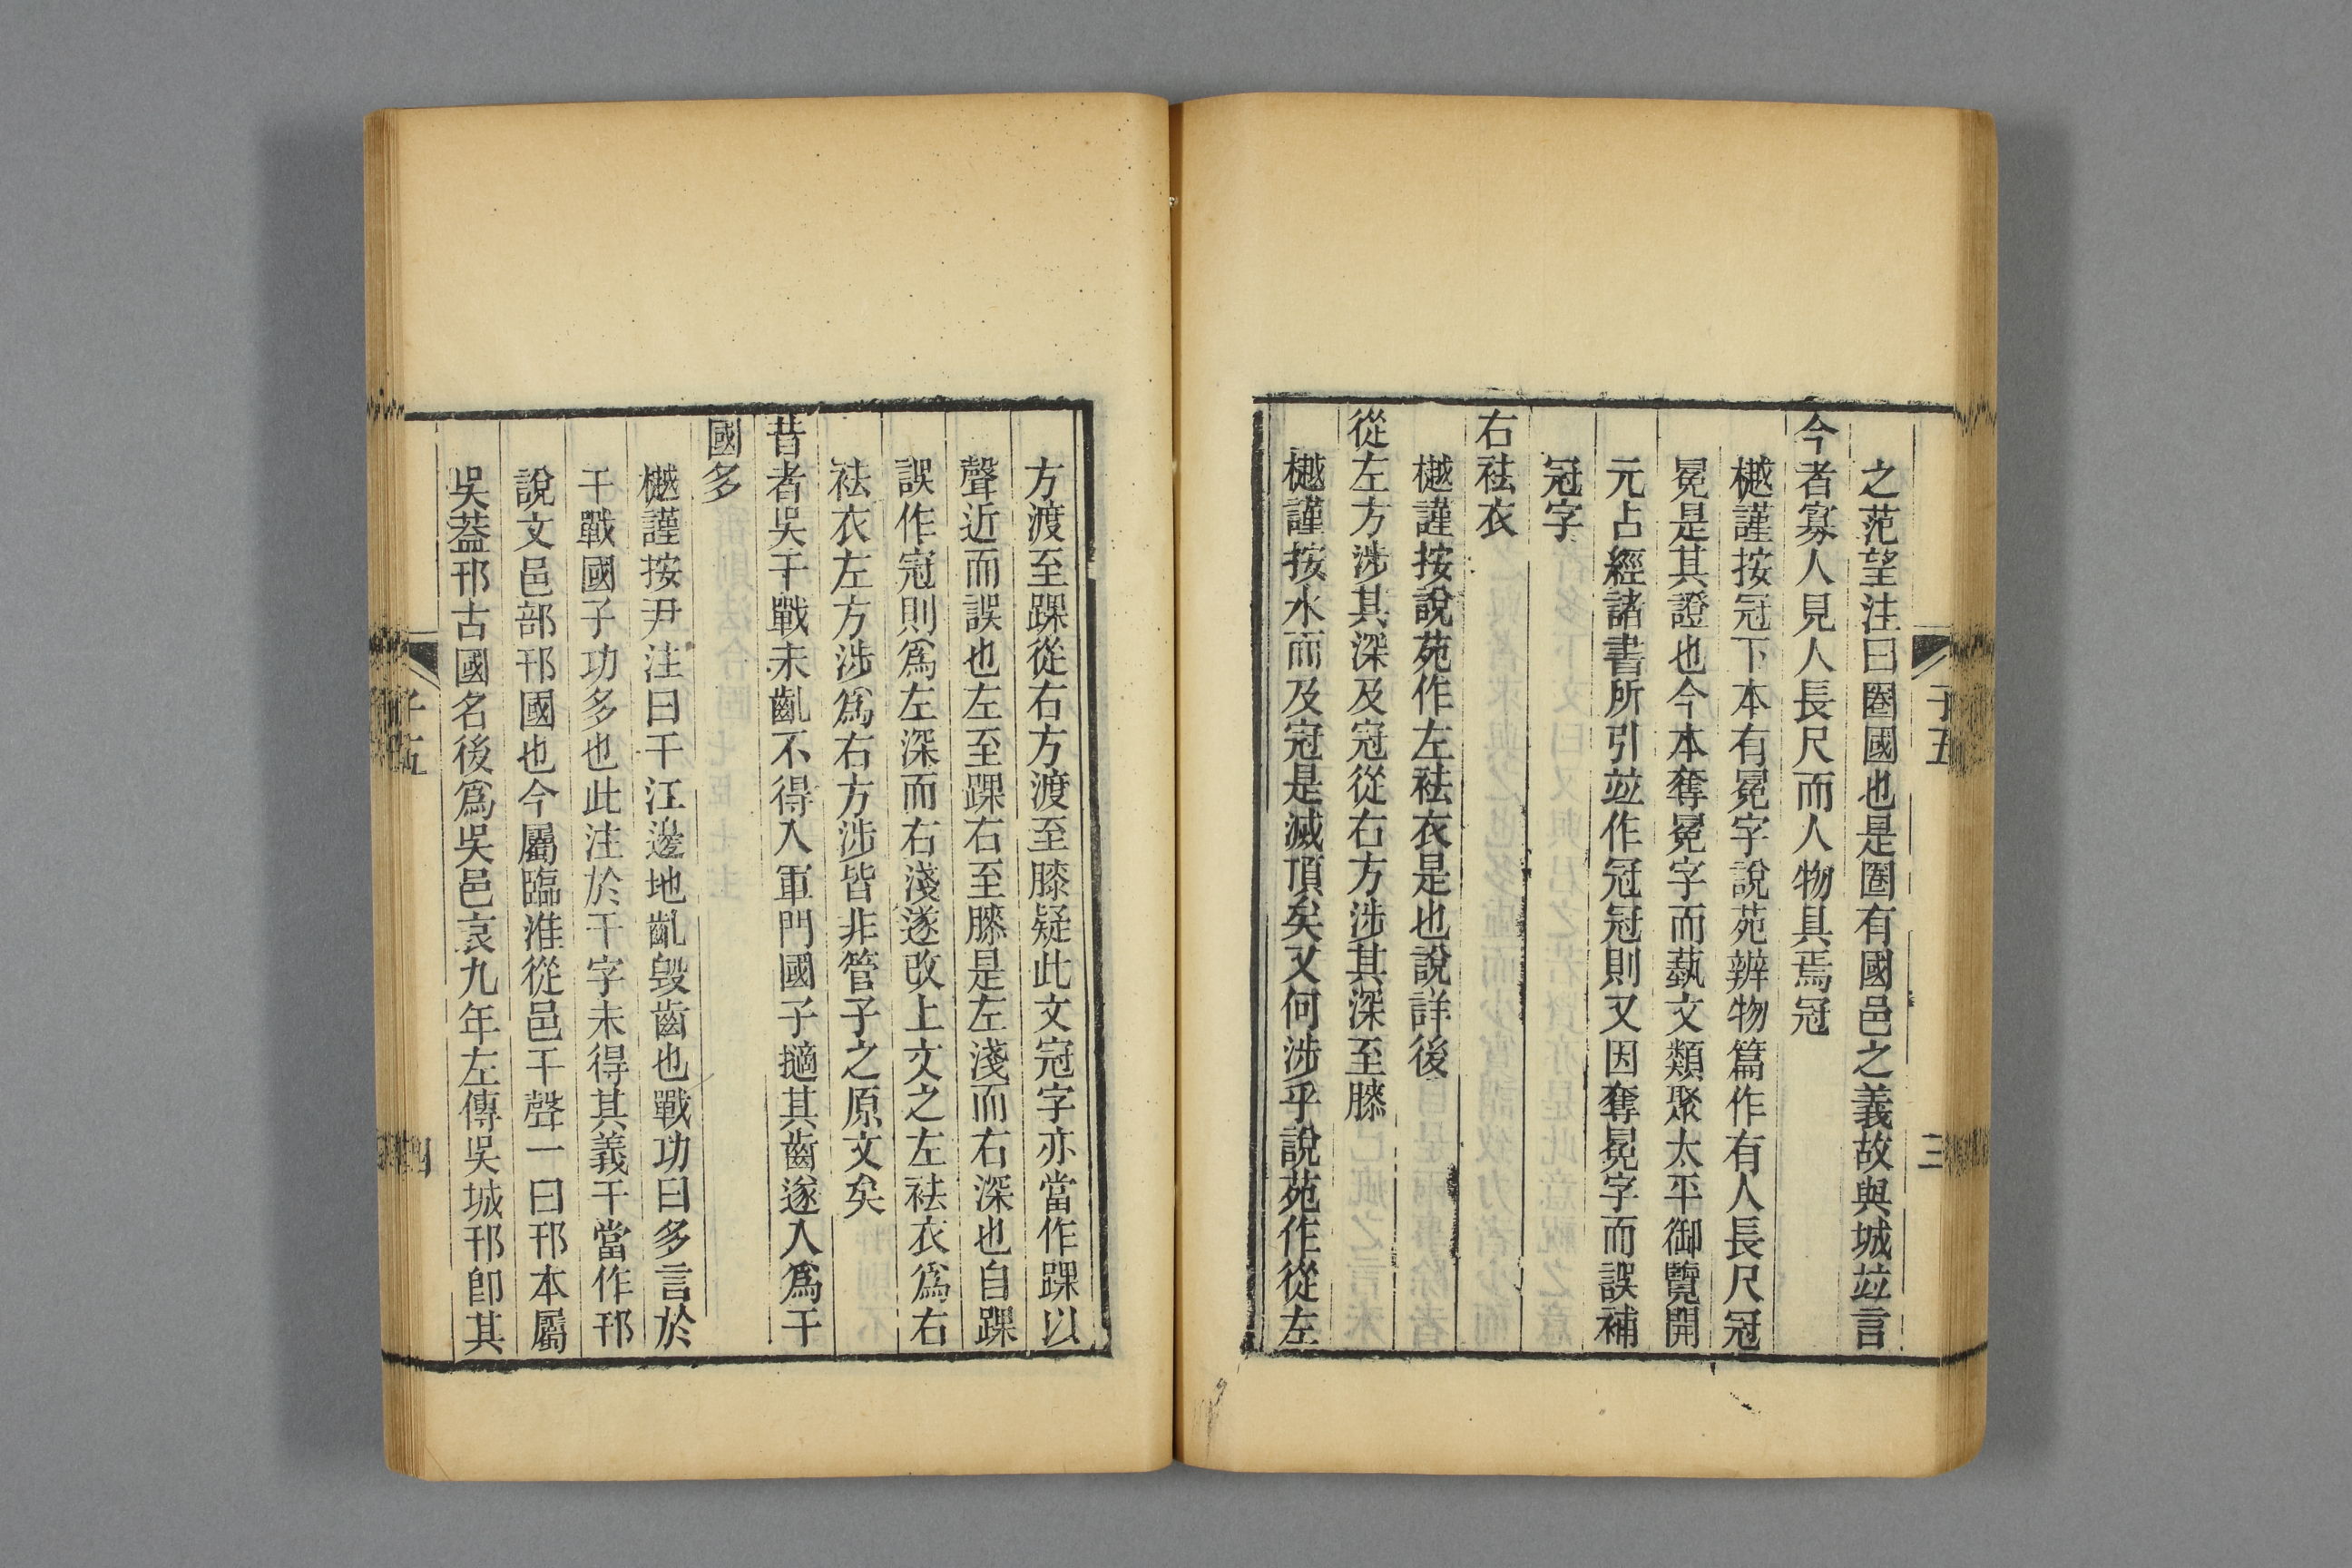 子五
三
之范望注曰圈國也是圈有國邑之義故與城竝言
今者寡人見人長尺而人物具焉冠
樾謹按冠下本有冕字說苑辨物篇作有人長尺冠
冕是其證也今本奪冕字而蓺文類聚太平御覽開
元占經諸書所引竝作冠冠則又因奪冕字而誤補
冠字
右袪衣
樾謹按說苑作左袪衣是也說詳後
從左方涉其深及冠從右方涉其深至膝
樾謹按水而及冠是滅頂矣又何涉乎說苑作從左
方渡至踝從右方渡至膝疑此文冠字亦當作踝以
聲近而誤也左至踝右至膝是左淺而右深也自踝
誤作冠則爲左深而右淺遂改上文之左袪衣爲右
袪衣左方涉爲右方涉皆非管子之原文矣
昔者吳干戰未齓不得入軍門國子擿其齒遂入爲干
國多
樾謹按尹注曰干江邊地齓毀齒也戰功曰多言於
干戰國子功多也此注於干字未得其義干當作邗
說文邑部邗國也今屬臨淮從邑干聲一曰邗本屬
吳葢邗古國名後爲吳邑哀九年左傳吳城邗卽其
子五
四